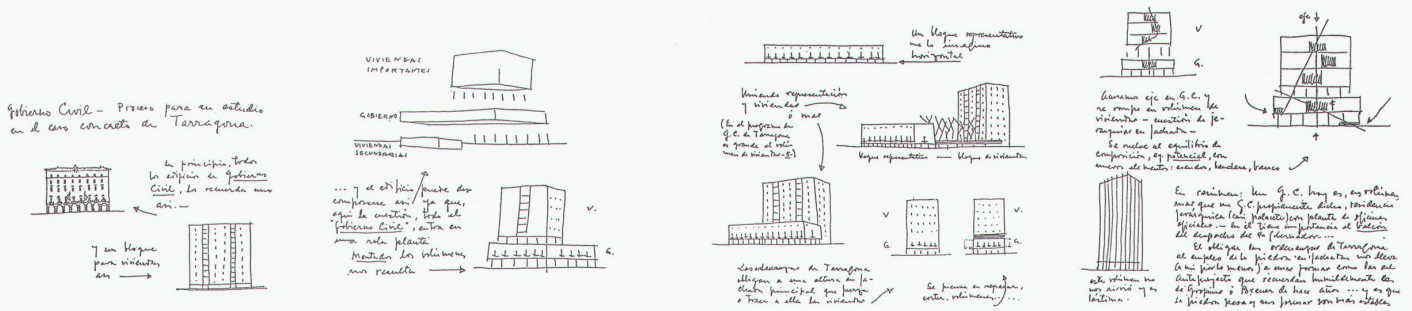 Gobierno Civil — Proceso para su estudio
en el caso concreto de Tarragona.
En principio, todos
los edificios de Gobierno
Civil, los recuerda uno
así. —
y un bloque
para viviendas
así
VIVIENDAS
IMPORTANTES
GOBIERNO
VIVIENDAS
SECUNDARIAS
... y el edificio puede des
componerse así ya que,
aquí la cuestión, todo el
"Gobierno Civil", entra en
una sola planta
Montados los volúmenes
nos resulta
V.
G.
Un bloque representativo
me lo imagino
horizontal
Uniendo representación
y viviendas
ó mas
(En el programa de
G.C. de Tarragona
es grande el volú
men de viviendas)
bloque representativo — bloque de viviendas
Las ordenanzas de Tarragona
obligan a una altura en fa-
chada principal que fuerza
a traer a ella las viviendas
V
G.
V
G.
Se piensa en separar,
cortar, volúmenes ....
V
G.
eje
Hacemos eje en G.C. y
se rompe en volúmen de
viviendas — cuestión de je-
rarquías en fachada —
Se vuelve al equilibrio de
composición, ej. potencial, con
nuevos elementos: escudos, bandera, banco
este volúmen no
nos sirvió y es
lástima.
En resúmen: Un G.C. hoy es, en volúmen,
mas que un G.C. propiamente dicho, residencia
jerárquica (casi palacete) con planta de oficinas
oficiales. — En él tiene importancia el balcón
del despacho del Gobernador...
El obligar las ordenanzas de Tarragona
al empleo de la piedra en fachadas nos lleva
(a mí por lo menos) a unas formas como las del
anteproyecto que recuerdan humildemente las
de Gropius ó Breuer de hace años ... y es que
la piedra pesa y sus formas son más estables